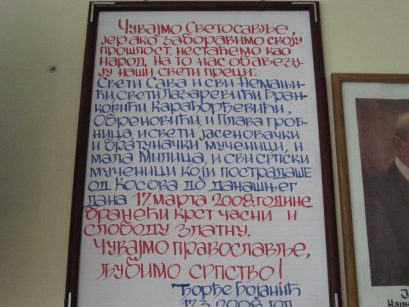 Чувајмо Светосавље,
јер ако заборавимо своју
прошлост, нестаћемо као
народ, на то нас обавезу-
ју наши свети преци:
Свети Сава и сви Немањи-
ћи, свети Лазаревићи, Бран-
ковићи, Карађорђевићи,
Обреновићи, и Плава гроб-
ница, и свети јасеновачки
и братуначки мученици, и
мала Милица, и сви српски
мученици који пострадаше
од Косова до данашњег
дана 17 марта 2008. године
бранећи крст часни и
слободу златну.
Чувајмо православље,
љубимо српство!
Ђорђе Бојанић
17.3.2008. год.